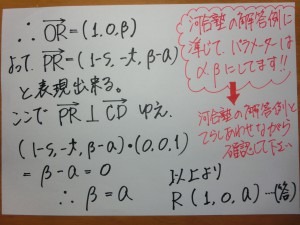 ∴ OR = (1, 0, β)
よって PR = (1-s, -t, β-a)
と表現出来る。
ここで PR ⊥ CD ゆえ、
(1-s, -t, β-a)・(0, 0, 1)
= β-a = 0
∴ β = a
河合塾の解答例に
準じて、パラメーターは
αβにしてます!!
河合塾の解答例と
てらしあわせながら
確認して下さい
以上より
R (1, 0, a) …(答)